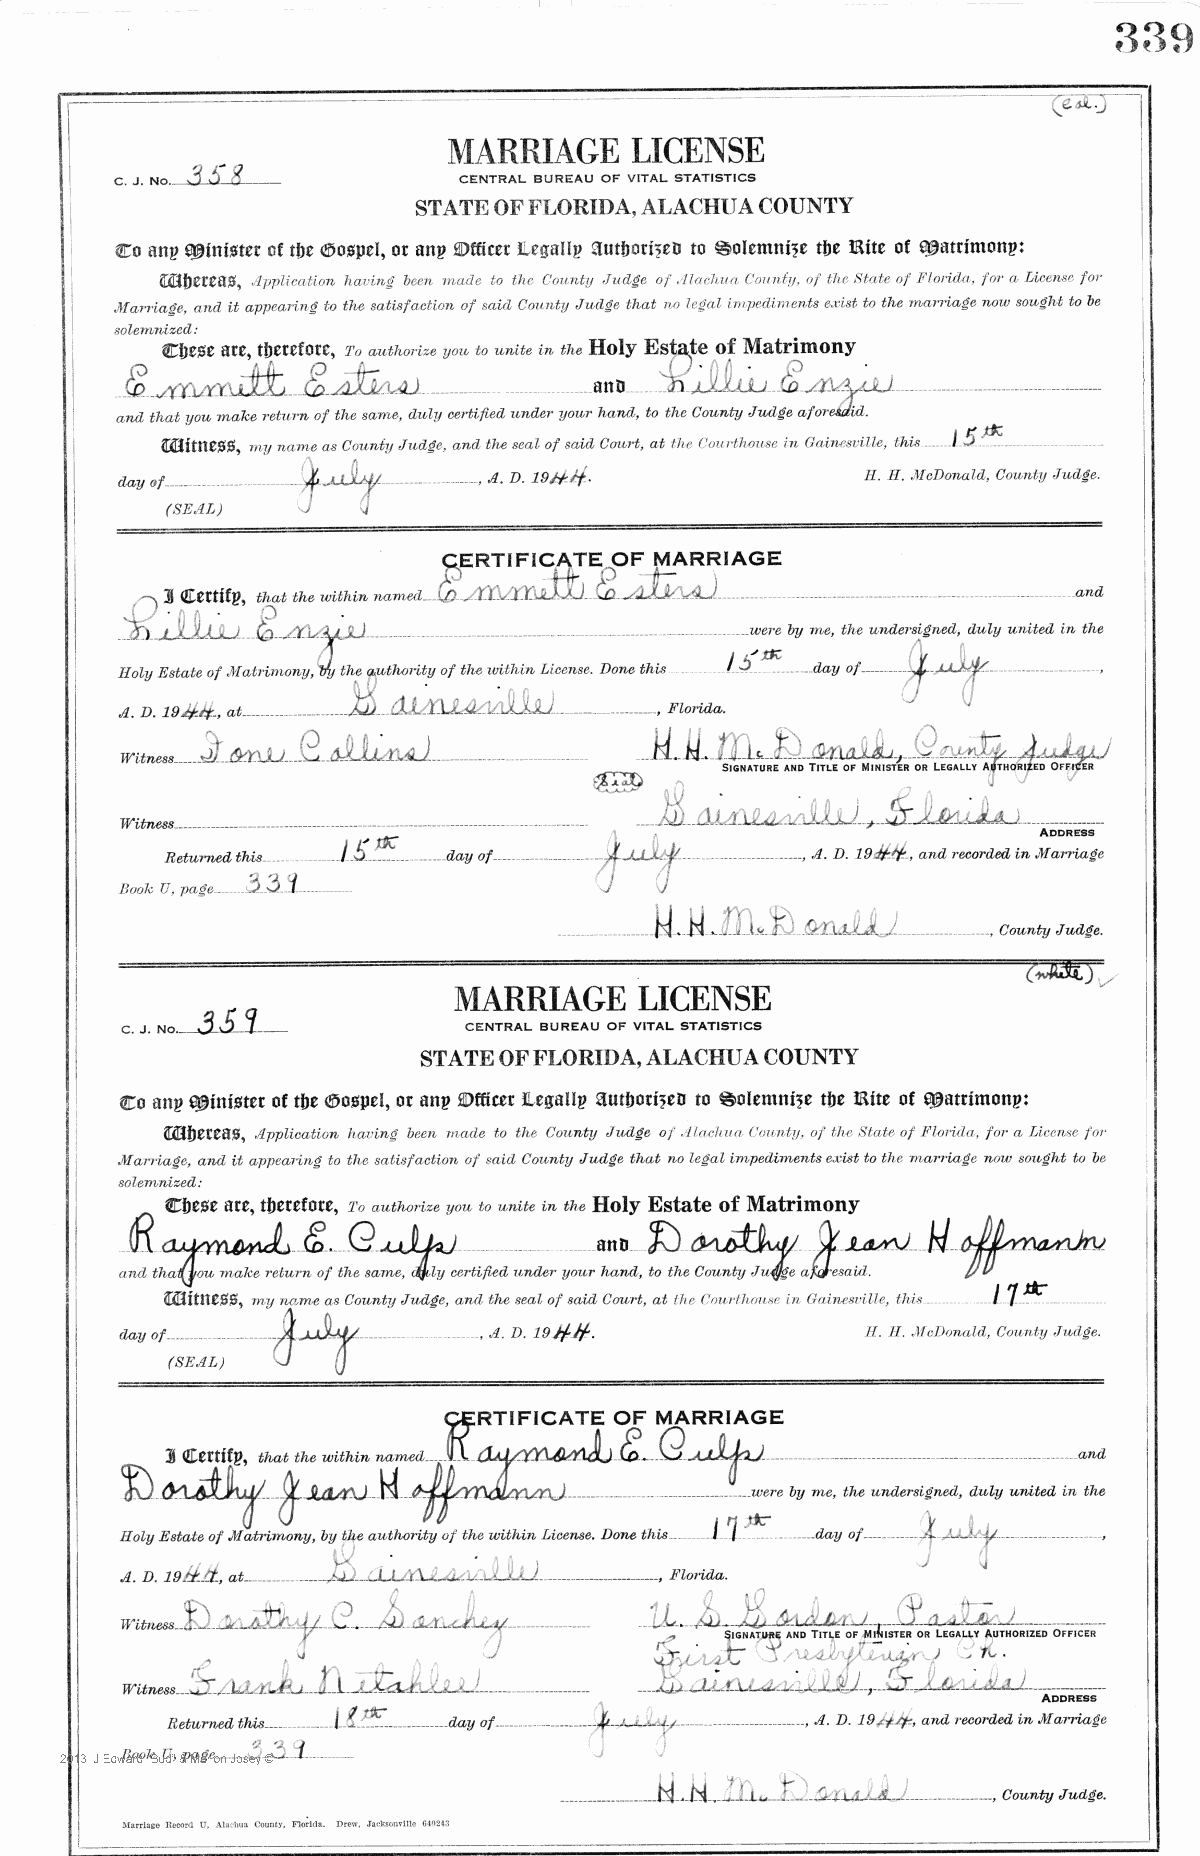 339
(Col.)
MARRIAGE LICENSE
C. J. No. 358
CENTRAL BUREAU OF VITAL STATISTICS
STATE OF FLORIDA, ALACHUA COUNTY
To any Minister of the Gospel, or any Officer Legally Authorized to Solemnize the Rite of Matrimony:
Whereas, Application having been made to the County Judge of Alachua County, of the State of Florida, for a License for
Marriage, and it appearing to the satisfaction of said County Judge that no legal impediments exist to the marriage now sought to be
solemnized:
These are, therefore, To authorize you to unite in the Holy Estate of Matrimony
Emmett Esters and Lillie Enzie
and that you make return of the same, duly certified under your hand, to the County Judge aforesaid.
Witness, my name as County Judge, and the seal of said Court, at the Courthouse in Gainesville, this 15th
day of July, A. D. 1944. H. H. McDonald, County Judge.
(SEAL)
CERTIFICATE OF MARRIAGE
I Certify, that the within named Emmett Esters and
Lillie Enzie were by me, the undersigned, duly united in the
Holy Estate of Matrimony, by the authority of the within License. Done this 15th day of July,
A. D. 1944, at Gainesville, Florida.
Witness Ione Collins H.H. McDonald, County Judge
SIGNATURE AND TITLE OF MINISTER OR LEGALLY AUTHORIZED OFFICER
Seal
Witness Gainesville, Florida
ADDRESS
Returned this 15th day of July, A. D. 1944, and recorded in Marriage
Book U, page 339
H.H. McDonald, County Judge.
(white)
MARRIAGE LICENSE
C. J. No. 359
CENTRAL BUREAU OF VITAL STATISTICS
STATE OF FLORIDA, ALACHUA COUNTY
To any Minister of the Gospel, or any Officer Legally Authorized to Solemnize the Rite of Matrimony:
Whereas, Application having been made to the County Judge of Alachua County, of the State of Florida, for a License for
Marriage, and it appearing to the satisfaction of said County Judge that no legal impediments exist to the marriage now sought to be
solemnized:
These are, therefore, To authorize you to unite in the Holy Estate of Matrimony
Raymond E. Culp and Dorothy Jean Hoffmann
and that you make return of the same, duly certified under your hand, to the County Judge aforesaid.
Witness, my name as County Judge, and the seal of said Court, at the Courthouse in Gainesville, this 17th
day of July, A. D. 1944. H. H. McDonald, County Judge.
(SEAL)
CERTIFICATE OF MARRIAGE
I Certify, that the within named Raymond E. Culp and
Dorothy Jean Hoffmann were by me, the undersigned, duly united in the
Holy Estate of Matrimony, by the authority of the within License. Done this 17th day of July,
A. D. 1944, at Gainesville, Florida.
Witness Dorothy C. Sanchez U. S. Gordon, Pastor
SIGNATURE AND TITLE OF MINISTER OR LEGALLY AUTHORIZED OFFICER
First Presbyterian Ch.
Witness Frank Gainesville, Florida
ADDRESS
Returned this 18th day of July, A. D. 1944, and recorded in Marriage
Book U, page 339
2013 J Edward
H.H. McDonald, County Judge.
Marriage Record U, Alachua County, Florida. Drew, Jacksonville 640243